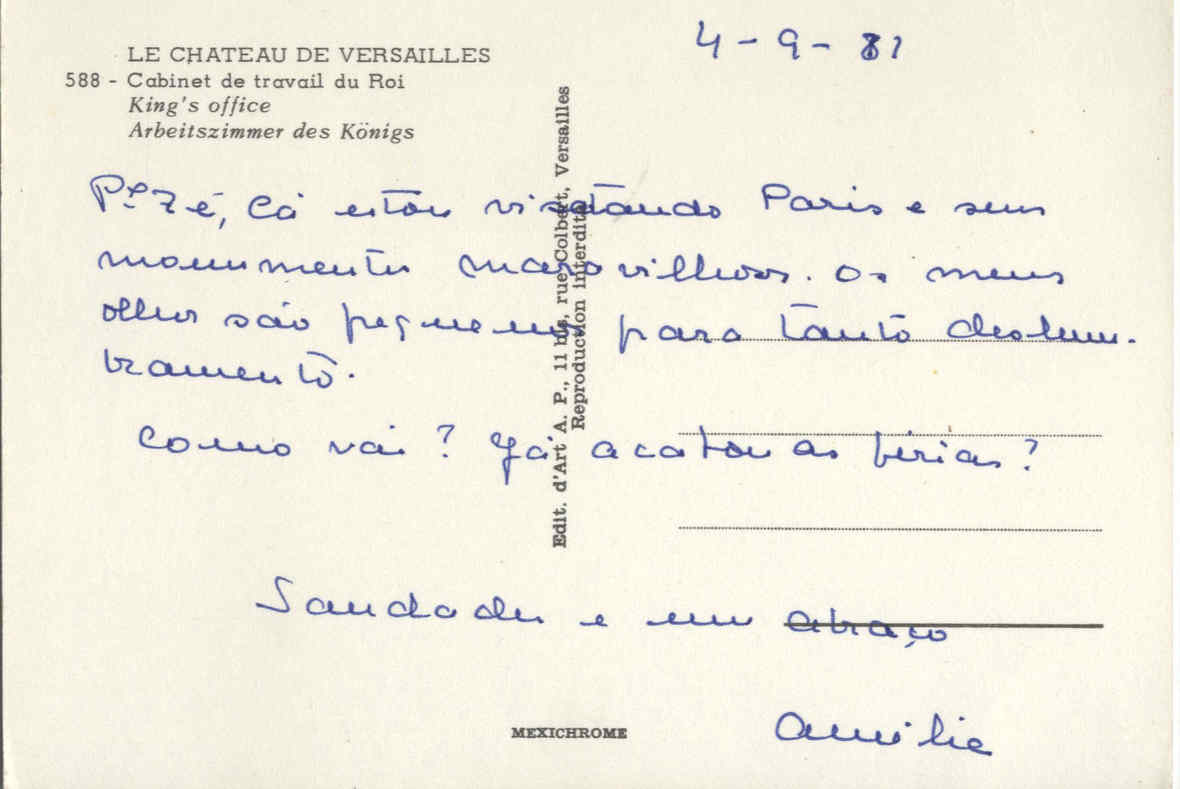 LE CHATEAU DE VERSAILLES
588 - Cabinet de travail du Roi
King's office
Arbeitszimmer des Königs
4-9-81
Pe Zé, Cá estou visitando Paris e seus
monumentos maravilhosos. Os meus
olhos são pequenos para tanto deslum-
bramento.
Como vai? Já acabou as férias?
Saudades e um abraço
Edit. d'Art A. P., 11 bis, rue Colbert, Versailles
Reproduction interdite
MEXICHROME